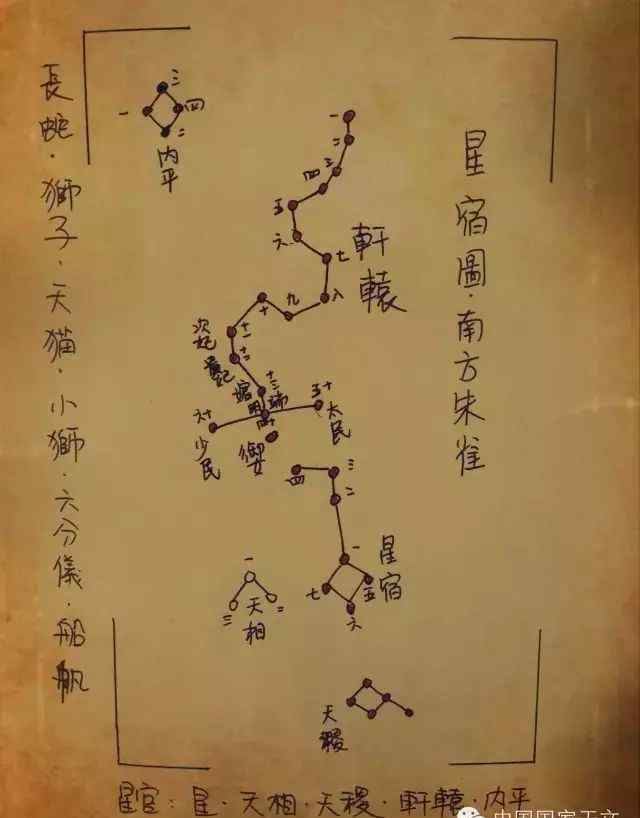 星宿圖·南方朱雀
三
一
四
二
内平
一
二
三
四
五
六
七
八
九
十
十一
十二
十三
軒轅
次妃
五十
太民
六十
少民
御女
四
三
二
一
七
五
六
星宿
一
二
三
天相
天稷
長蛇·獅子·天猫·小獅·六分儀·船帆
星官：星·天相·天稷·軒轅·内平
中国国家天文